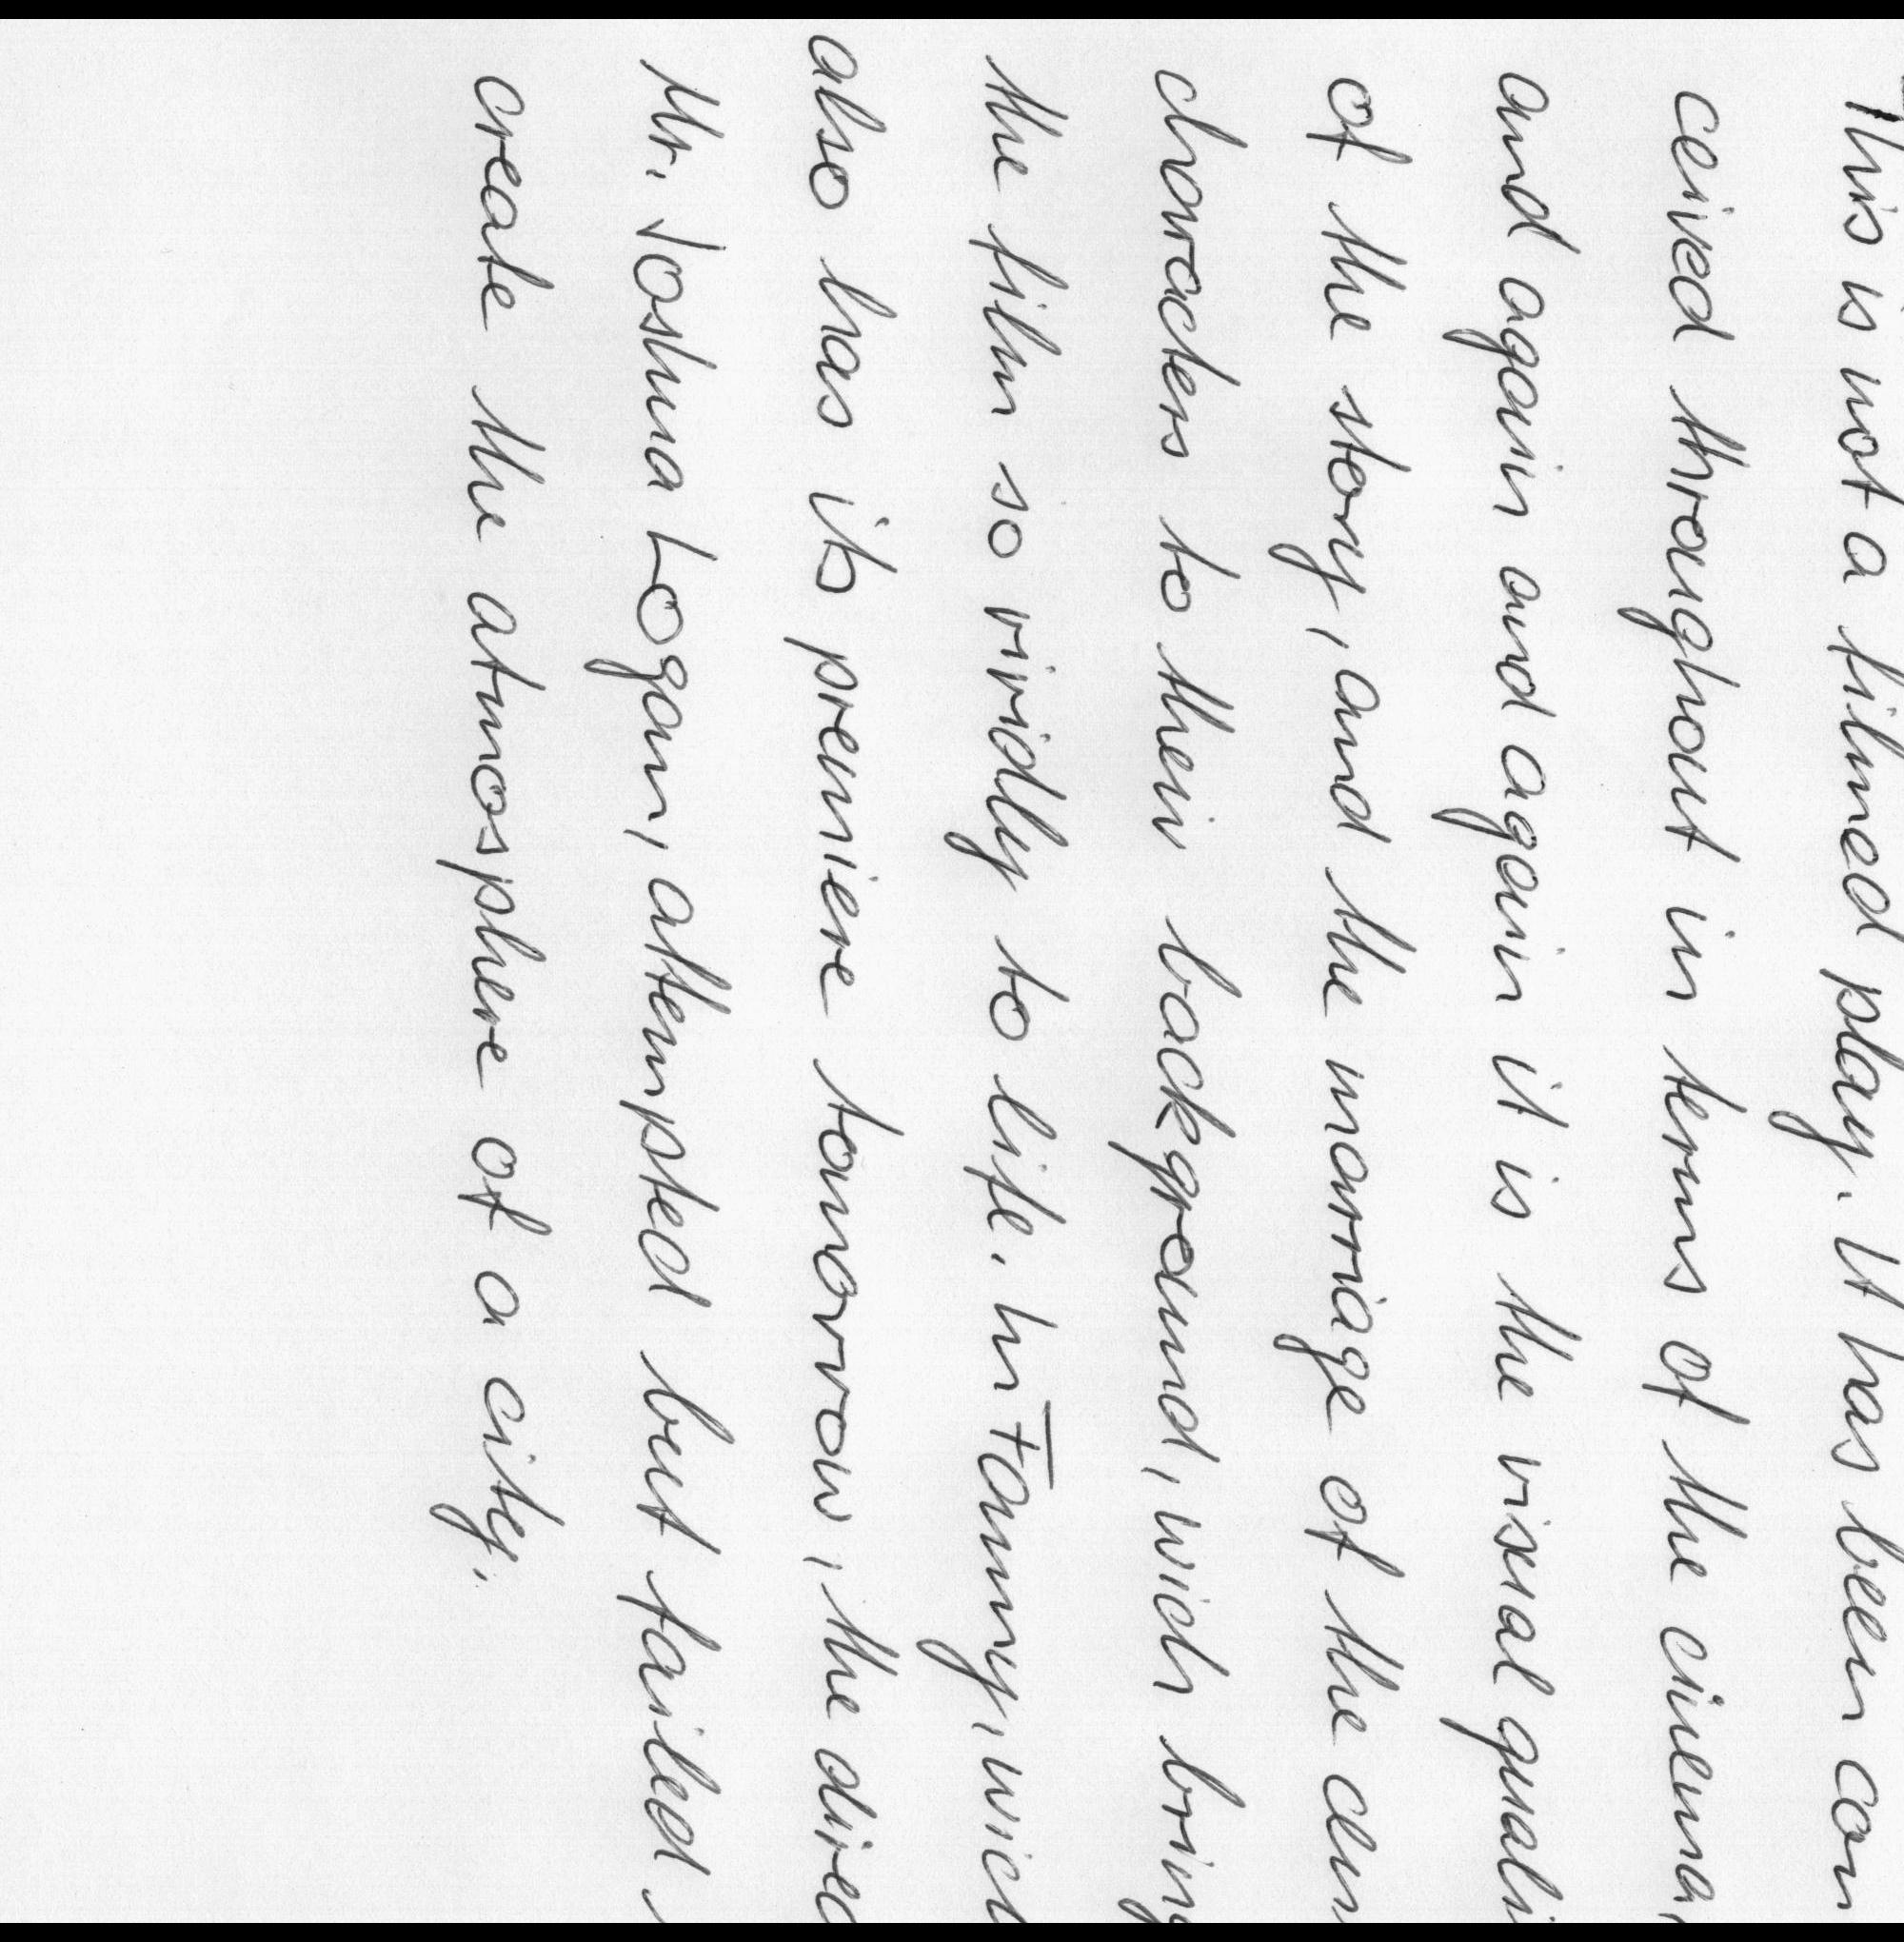 This is not a filmed play. It has been con
ceived throughout in terms of the cinema,
and again and again it is the visual quali
of the story, and the marriage of the
characters to their background, wich bring
the film so vividly to life. In Fanny, wich
also has its premiere tomorrow, the direc
Mr. Joshua Logan, attempted but failed
create the atmosphere of a city.